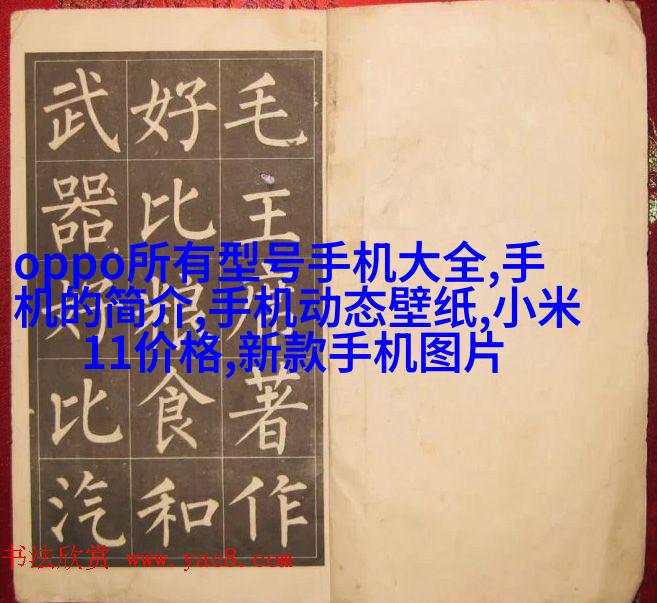 毛主席著作
好比粮食和
武器好比汽
oppo所有型号手机大全,手
机的简介,手机动态壁纸,小米
11价格,新款手机图片
书法欣赏 www.yac8.com